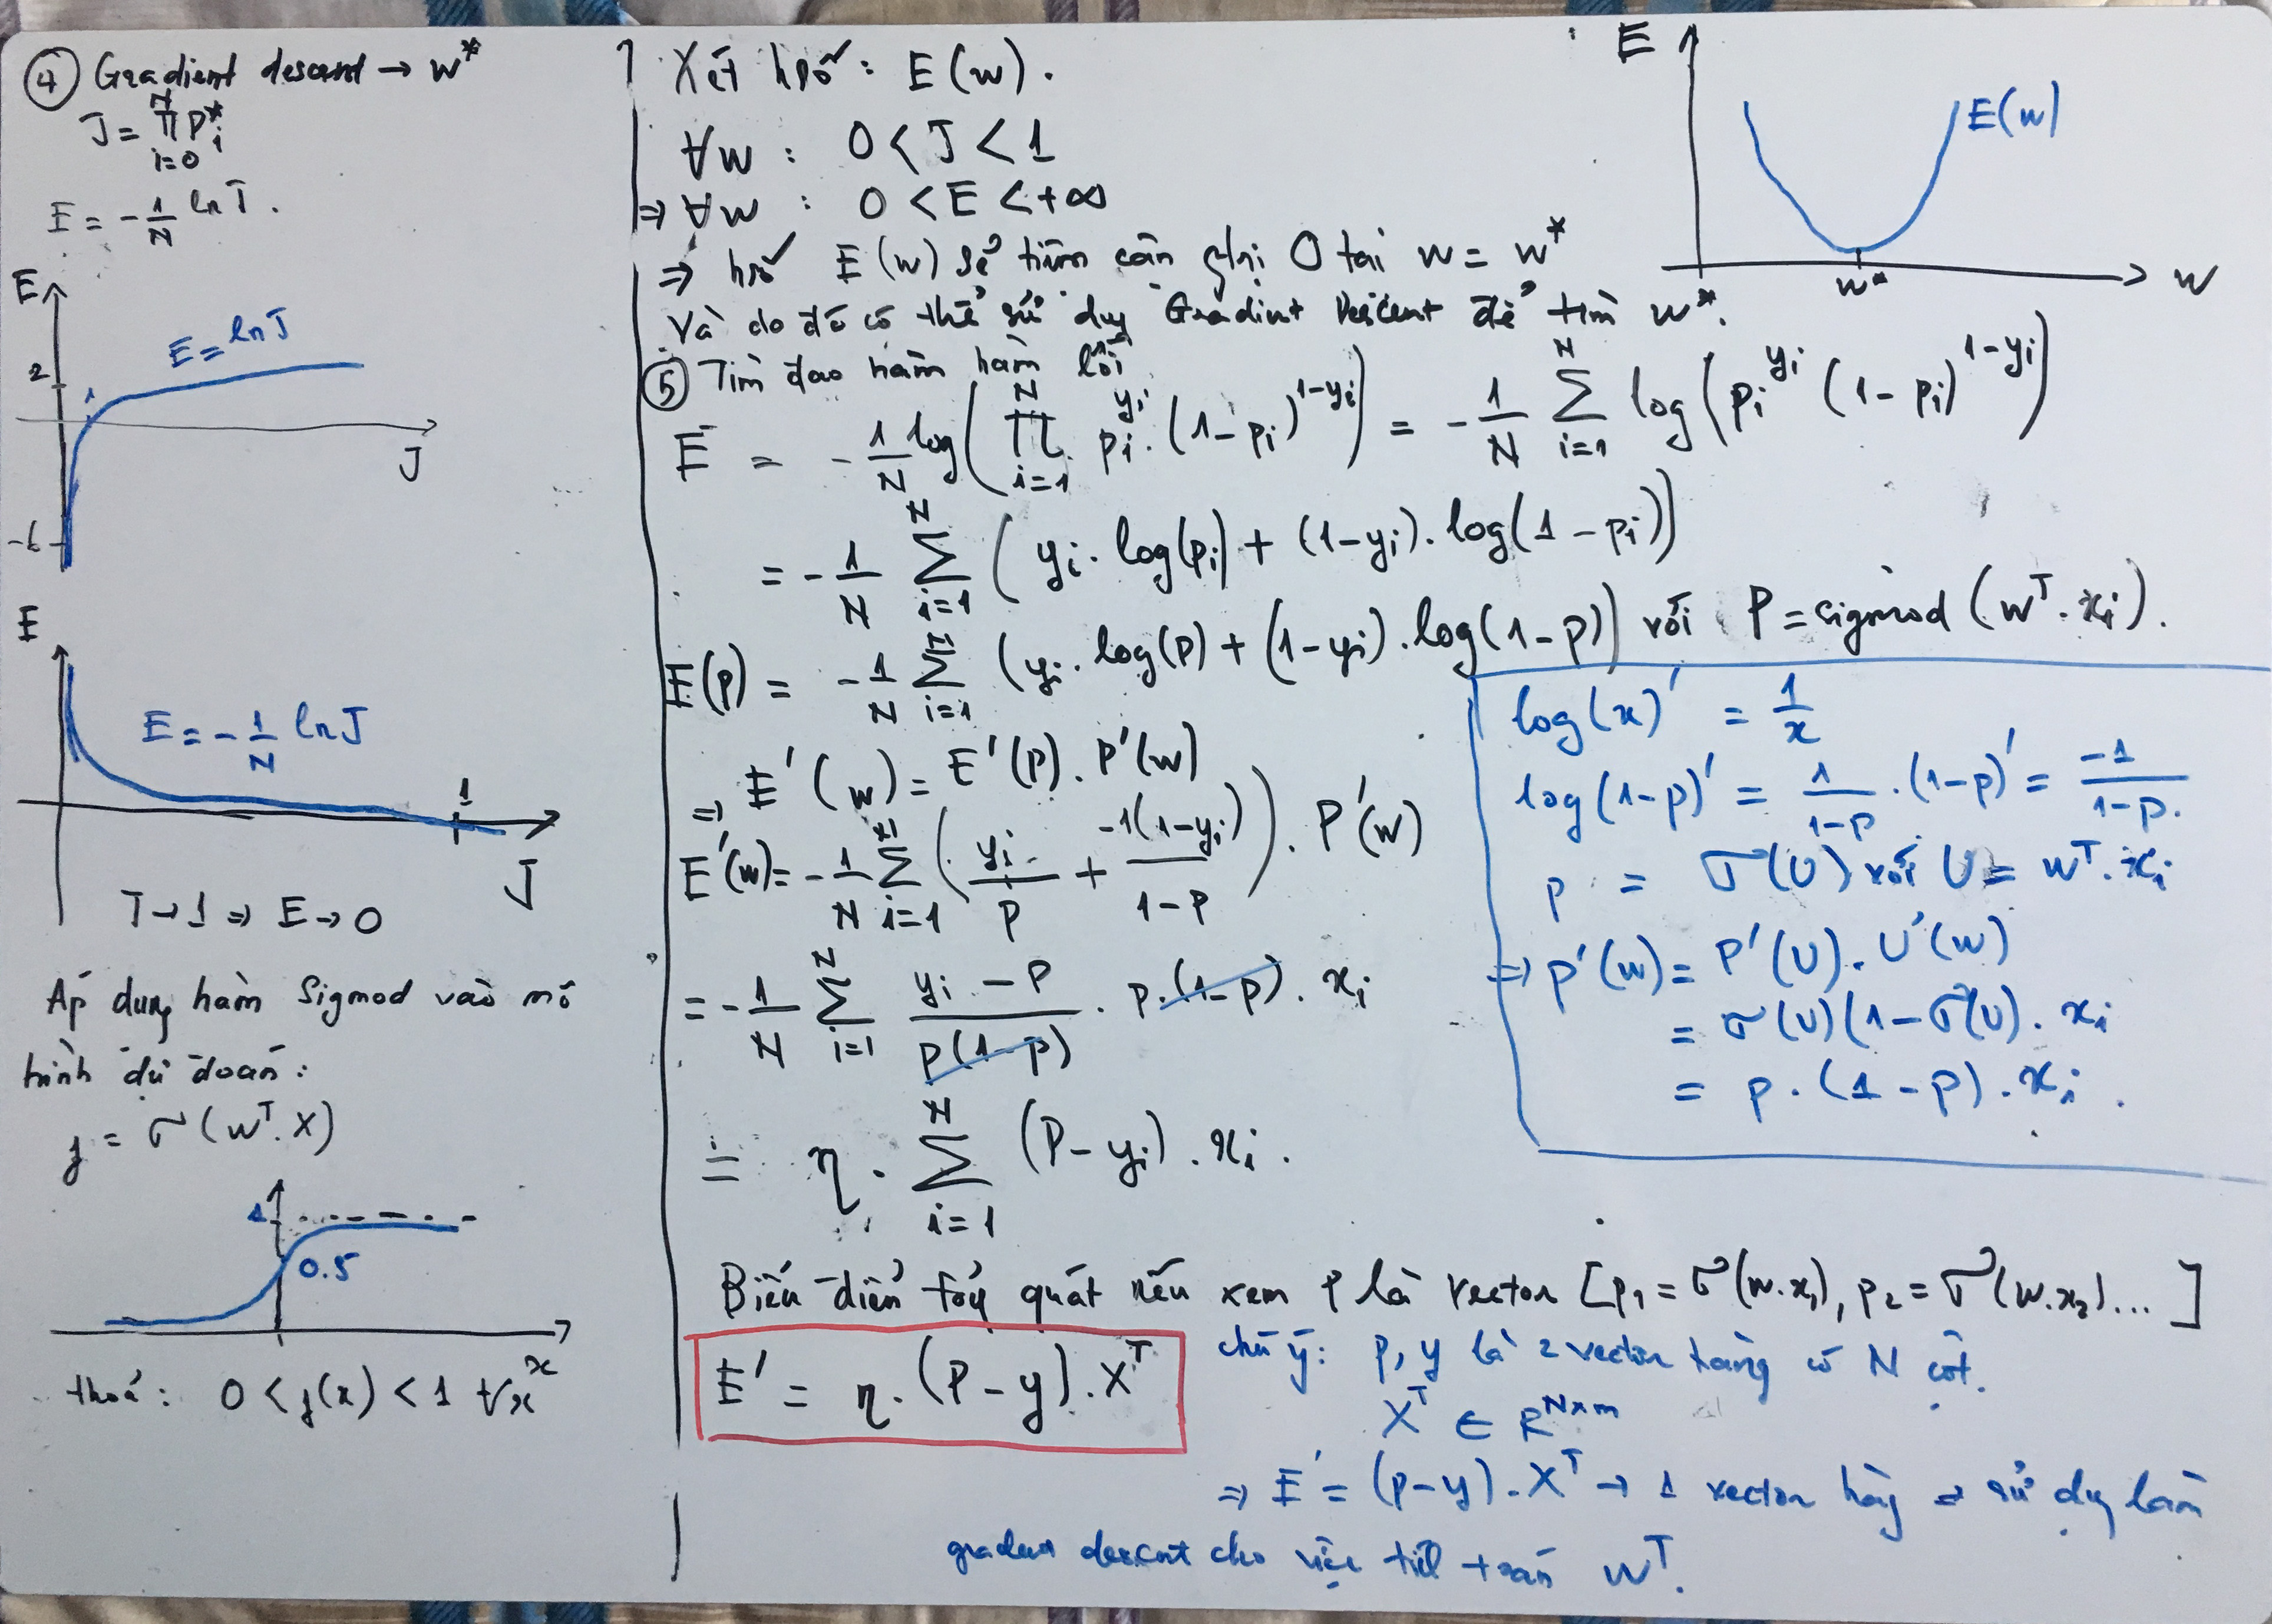 ④ Gradient descent → w*
J = ∏_{i=0}^{N} P_i*
E = -1/N ln J.
E
E = ln J
2
1
J
-6
E
E = -1/N ln J
1
J
J → 1 ⇒ E → 0
Áp dụng hàm Sigmod vào mô
hình dự đoán:
f = σ(w^T.X)
1
0.5
x
thoả: 0 < f(x) < 1 ∀x
Xét hsố: E(w).
∀w : 0 < J < 1
⇒ ∀w : 0 < E < +∞
⇒ hsố E(w) sẽ tiệm cận gtrị 0 tại w = w*
và do đó có thể sử dụng Gradient Descent để tìm w*.
E
E(w)
w*
w
⑤ Tìm đạo hàm hàm lỗi
E = -1/N log(∏_{i=1}^{N} p_i^{y_i}.(1-p_i)^{1-y_i}) = -1/N ∑_{i=1}^{N} log(p_i^{y_i} (1-p_i)^{1-y_i})
= -1/N ∑_{i=1}^{N} (y_i.log(p_i) + (1-y_i).log(1-p_i))
E(p) = -1/N ∑_{i=1}^{N} (y_i.log(p) + (1-y_i).log(1-p)) với P = sigmod(w^T.x_i).
⇒ E'(w) = E'(P).P'(w)
E'(w) = -1/N ∑_{i=1}^{N} (y_i/p + -1(1-y_i)/1-p).P'(w)
= -1/N ∑_{i=1}^{N} y_i - P/p(1-p) . p.(1-p).x_i
= η.∑_{i=1}^{N} (P-y_i).x_i.
log(x)' = 1/x
log(1-p)' = 1/1-p.(1-p)' = -1/1-p.
p = σ(U) với U = w^T.x_i
⇒ p'(w) = P'(U).U'(w)
= σ(U)(1-σ(U).x_i
= p.(1-p).x_i.
Biểu diễn tổng quát nếu xem P là vector [p_1 = σ(w.x_1), p_2 = σ(w.x_2)...]
E' = η.(P-y).X^T
chú ý: p, y là 2 vector hàng có N cột.
X^T ∈ R^{N×m}
⇒ E' = (p-y).X^T → 1 vector hàng ⇒ sử dụng làm
descent cho việc toán w^T.